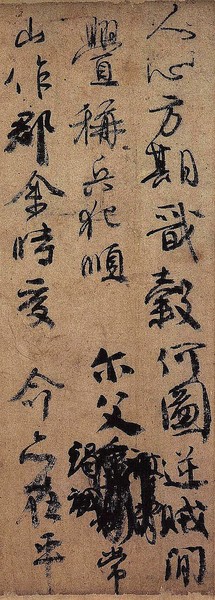 人心方期戩穀何圖逆賊閒
釁稱兵犯順爾父竭誠常
山作郡余時受命亦在平